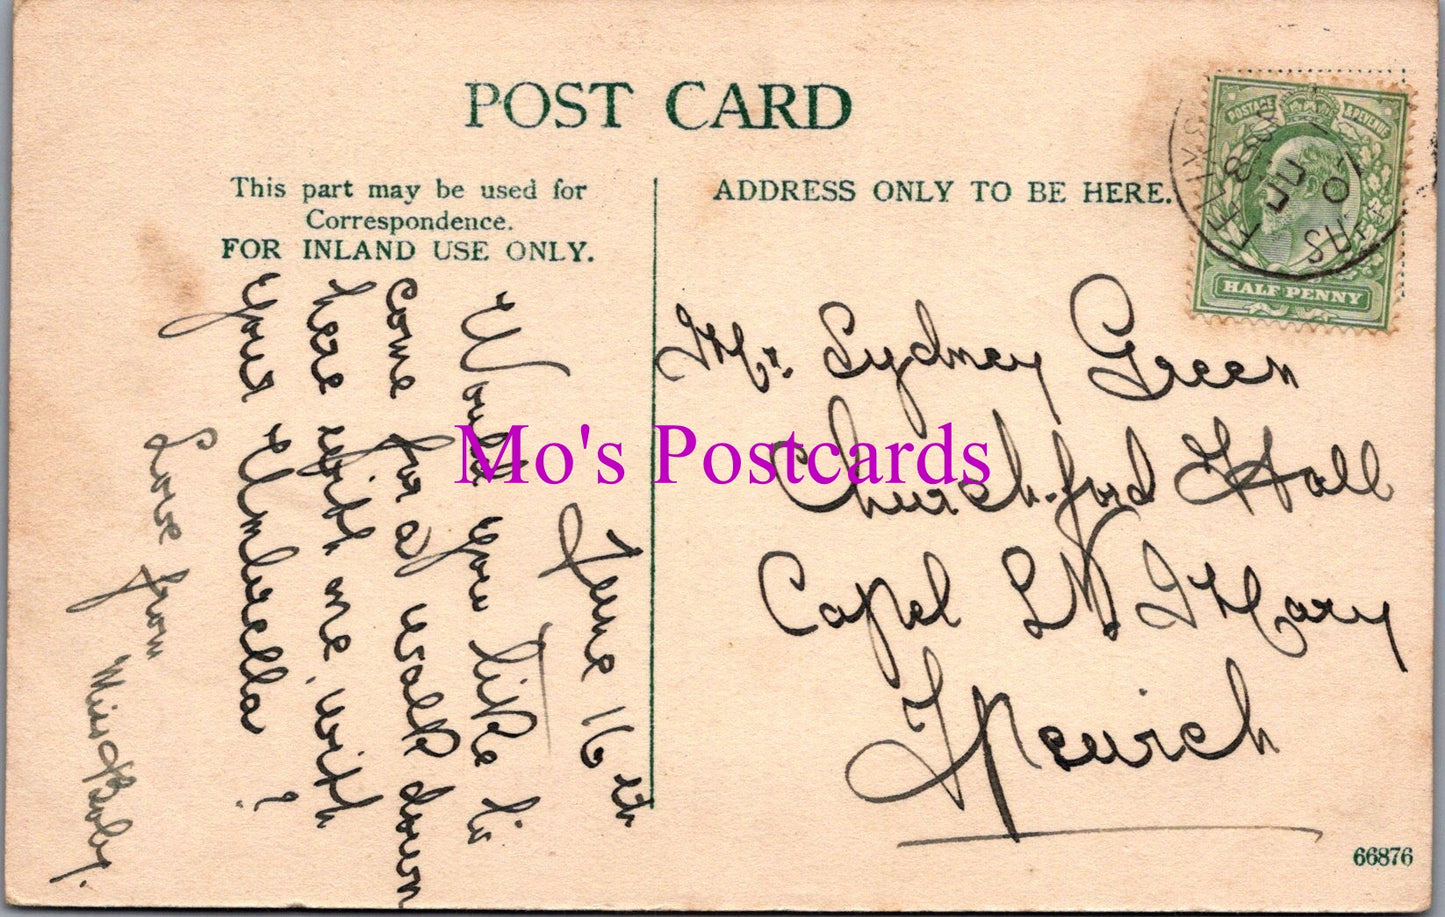 POST CARD
This part may be used for
Correspondence.
FOR INLAND USE ONLY.
ADDRESS ONLY TO BE HERE.
POSTAGE & REVENUE
HALF PENNY
June 16th
Would you like to
come for a walk down
here with me, with
your Umbrella ?
Love from
Miss Baby.
Mr. Sydney Green
Churchford Hall
Capel St Mary
Ipswich
Mo's Postcards
66876